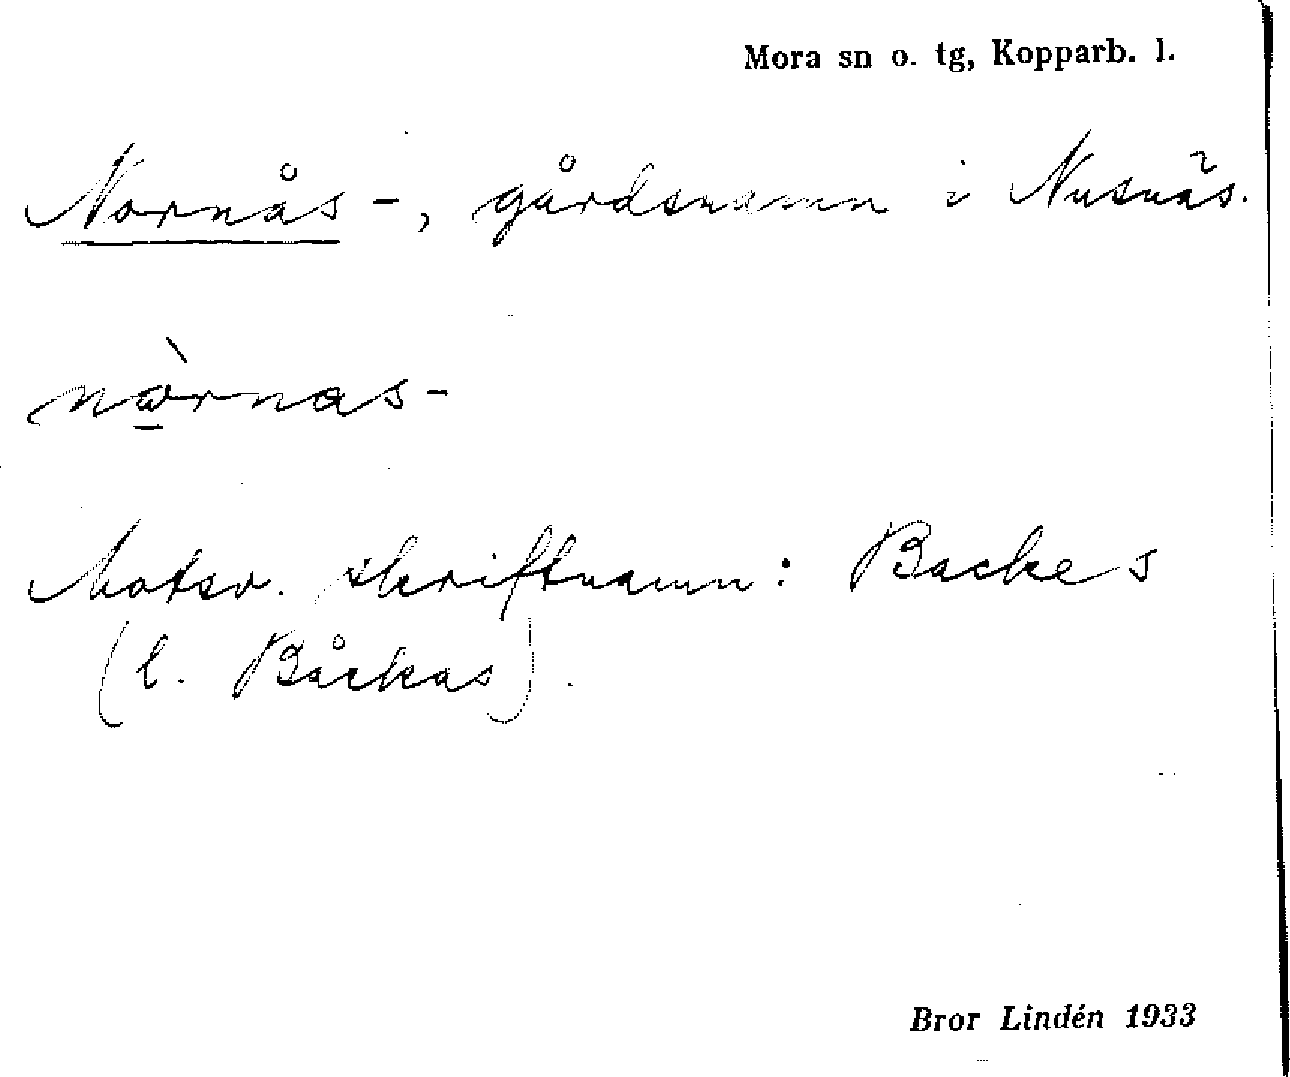 Mora sn o. tg, Kopparb. l.
Nornås-, gårdsnamn i Nusnäs.
nòrnas-
Motsv. skriftnamn: Backes
(l. Båckas).
Bror Lindén 1933